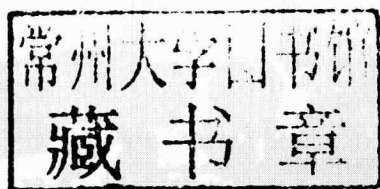 常州大字图书馆
藏书章